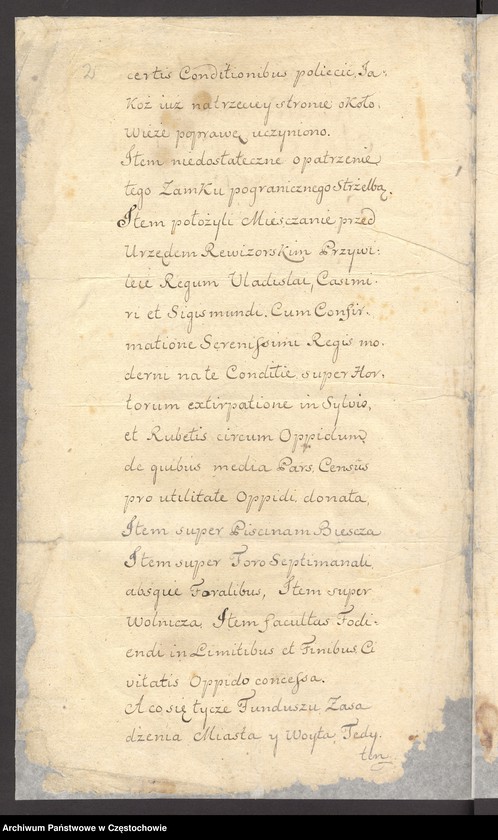 2
certis Conditionibus poliecic, Ja:
Koż iuz na trzeciey stronie około,
Wieże poprawę uczyniono.
Item niedostateczne opatrzenie
tego Zamku pogranicznego Strzelbą.
Item położyli Miesczanie przed
Urzędem Rewizorskim Przywi:
leie Regum Uladislai, Casimi:
ri et Sigismundi. Cum Confir:
matione Serenissimi Regis mo:
derni na te Conditie, super Hor,
torum extirpatione in Sylvis,
et Rubetis circum Oppidum
de quibus media Pars, Census
pro utilitate Oppidi, donata,
Item super Piscinam Biescza
Item super Foro Septimanali,
absque Foralibus, Item super
Wolnicza, Item facultas Fodi:
endi in Limitibus et Finibus, Ci
vitatis Oppido concessa.
A co się tycze Funduszu Zasa
dzenia Miasta y Woyta, Tedy.
ten
Archiwum Państwowe w Częstochowie